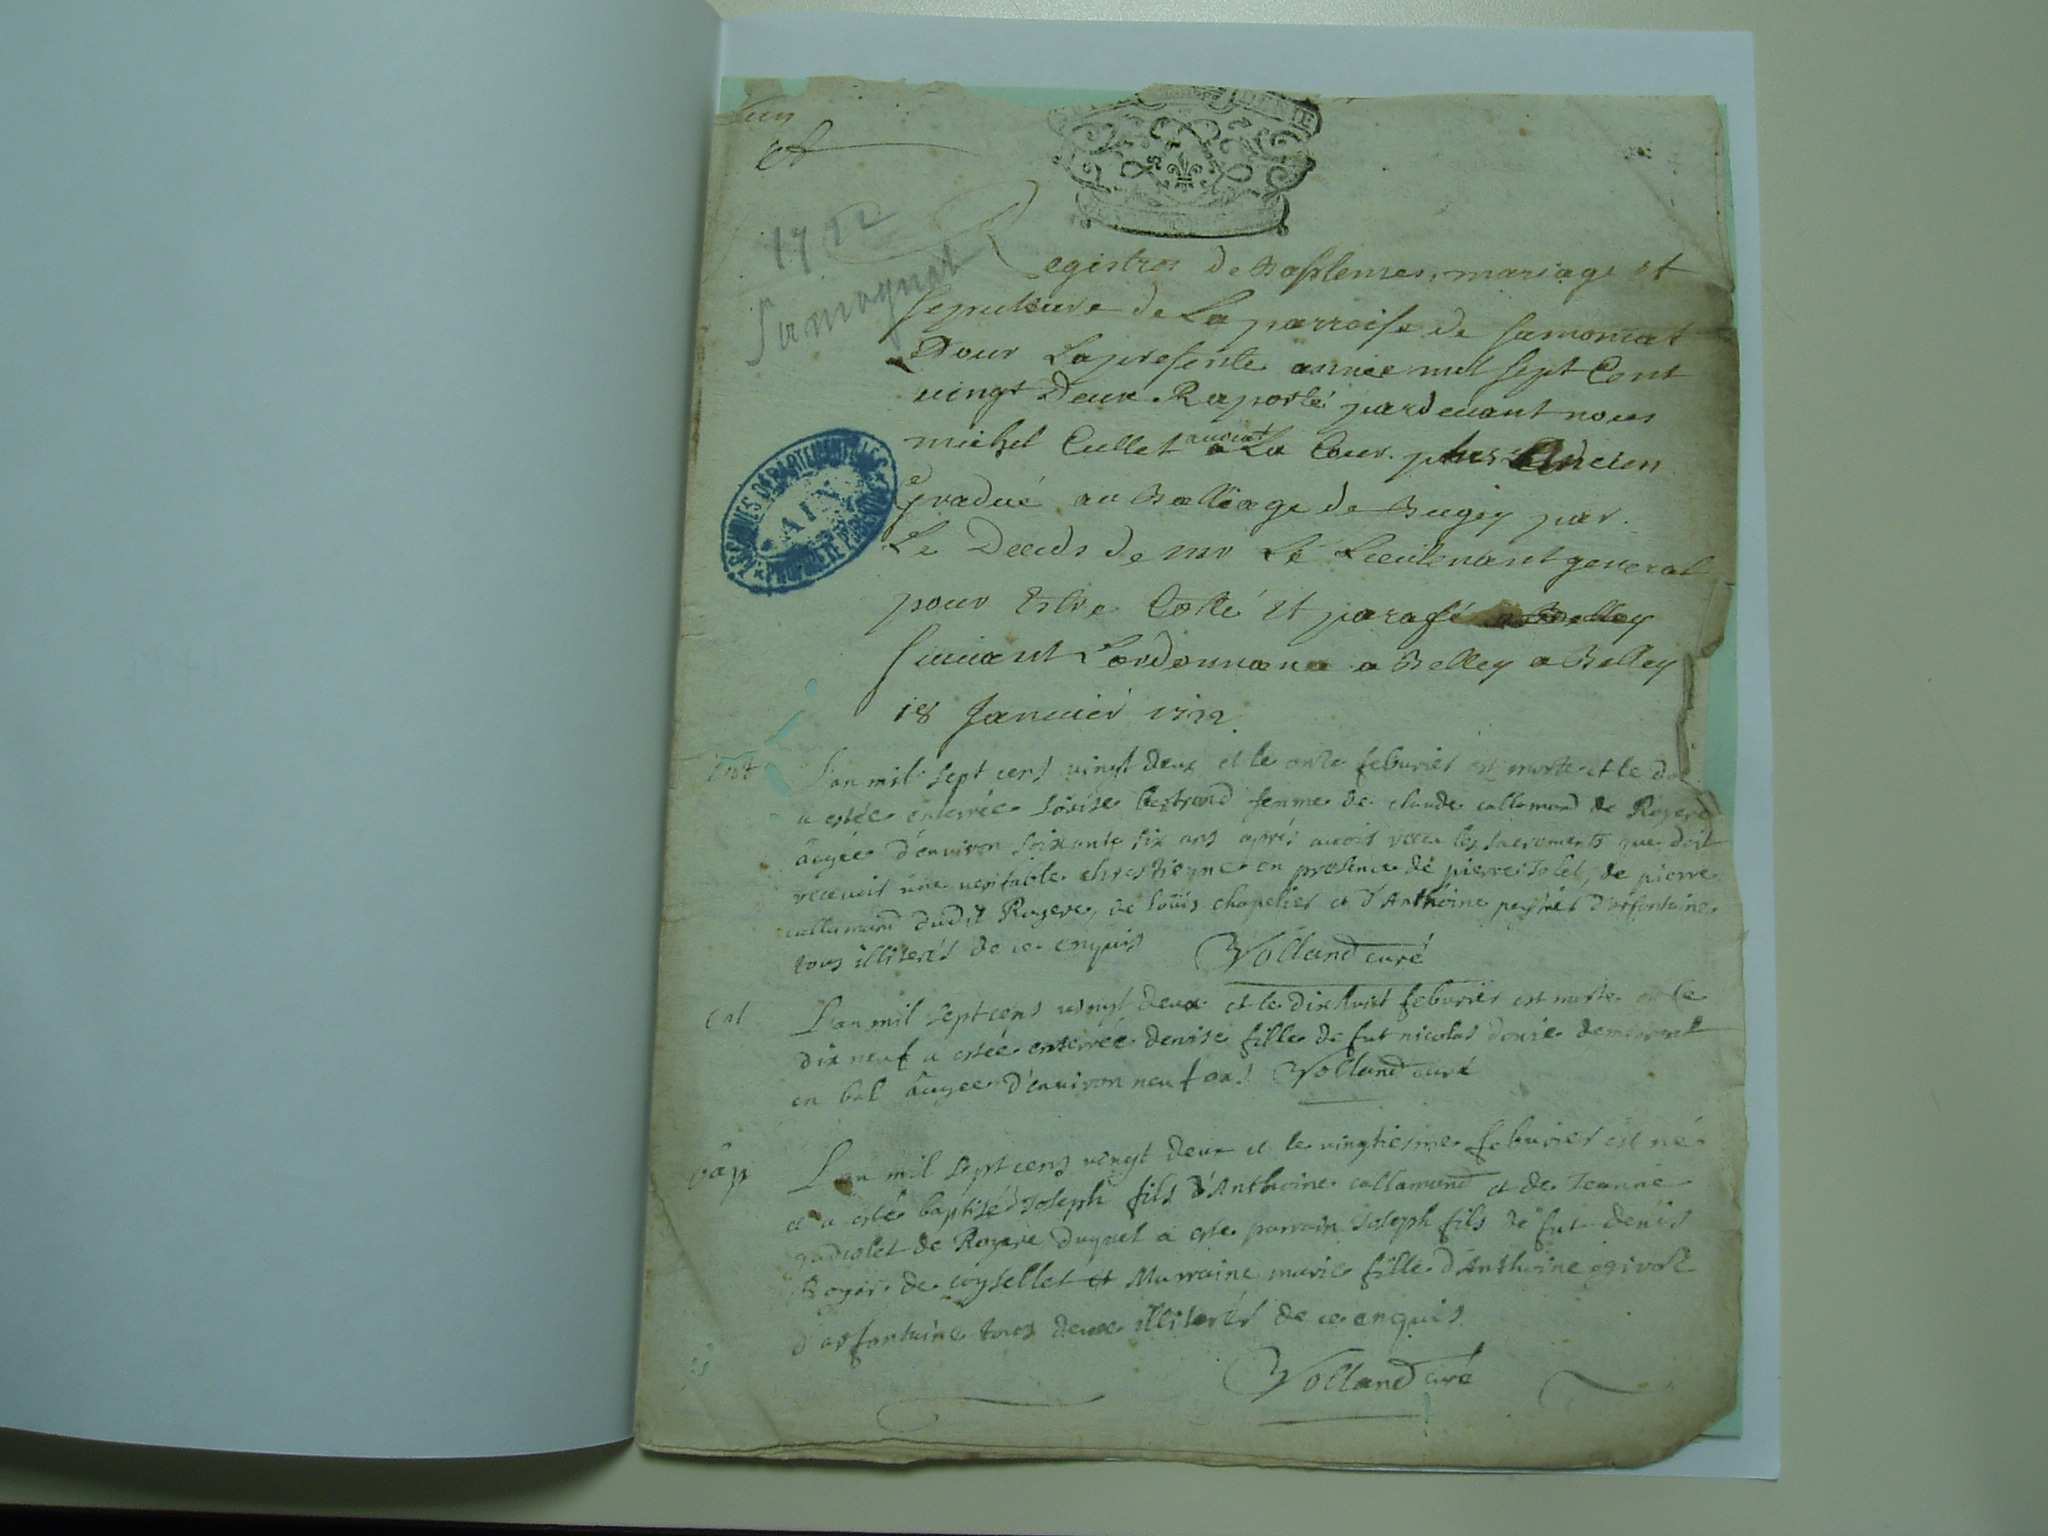 1722
Samognat
Registres de Baptemes, mariage et
sepulture de La parroise de samoniat
Pour La presente année mil sept Cent
vingt Deux Raporté pardevant nous
michel Cullet avocat a La Cour. plus Ancien
gradué au Balliage de Bugey par
Le Deceds de mr Le Lieutenant general
pour Estre Cotté et parafé a Belley
suivant L'ordonnance a Belley a Belley
18 Janvier 1722
ARCHIVES DÉPARTEMENTALES
AIN
PROPRIÉTÉ PUBLIQUE
ent
L'an mil sept cens vingt deux et le onze feburier est morte et le
a estée enterrée Loüise bertrand femme de claude callamand de Rogere
âugée d'environ soixante six ans après avoir receu les sacrements que doit
recevoir une veritable chrestienne en presence de pierre Jolet, de pierre
callamand dudit Rogere, de Loüis chapelier et d'Anthoine d'arfontaine
tous illiterés de ce enquis Volland curé
ent
L'an mil sept cens vingt deux et le dixhuit feburier est morte et le
dix neuf a estée enterrée denise fille de fut nicolas demeurant
en bal âugée d'environ neuf ans Volland curé
bap
L'an mil sept cens vingt deux et le vingtiesme feburier est né
et a esté baptisé Joseph fils d'Anthoine callamand et de Jeanne
gudiolet de Rogere duquel a esté parrain Joseph fils de fut denis
Roger de coysellet et Marraine marie fille d'Anthoine
d'arfontaine tous deux illiterés de ce enquis.
Volland curé